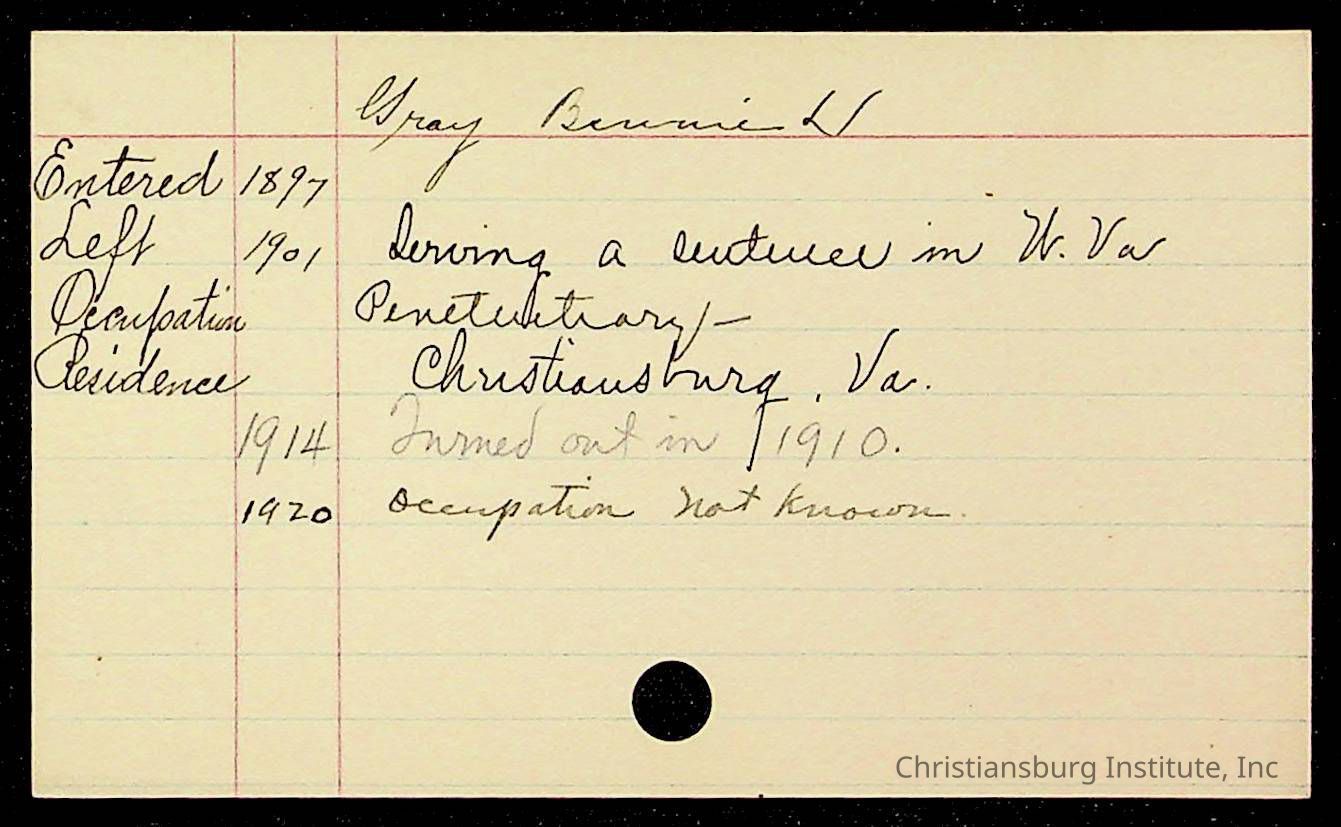 Gray Bennie W
Entered 1897
Left 1901 Serving a sentence in W. Va
Occupation Penetentiary—
Residence Christiansburg, Va.
1914 Turned out in 1910.
1920 Occupation not known.
Christiansburg Institute, Inc